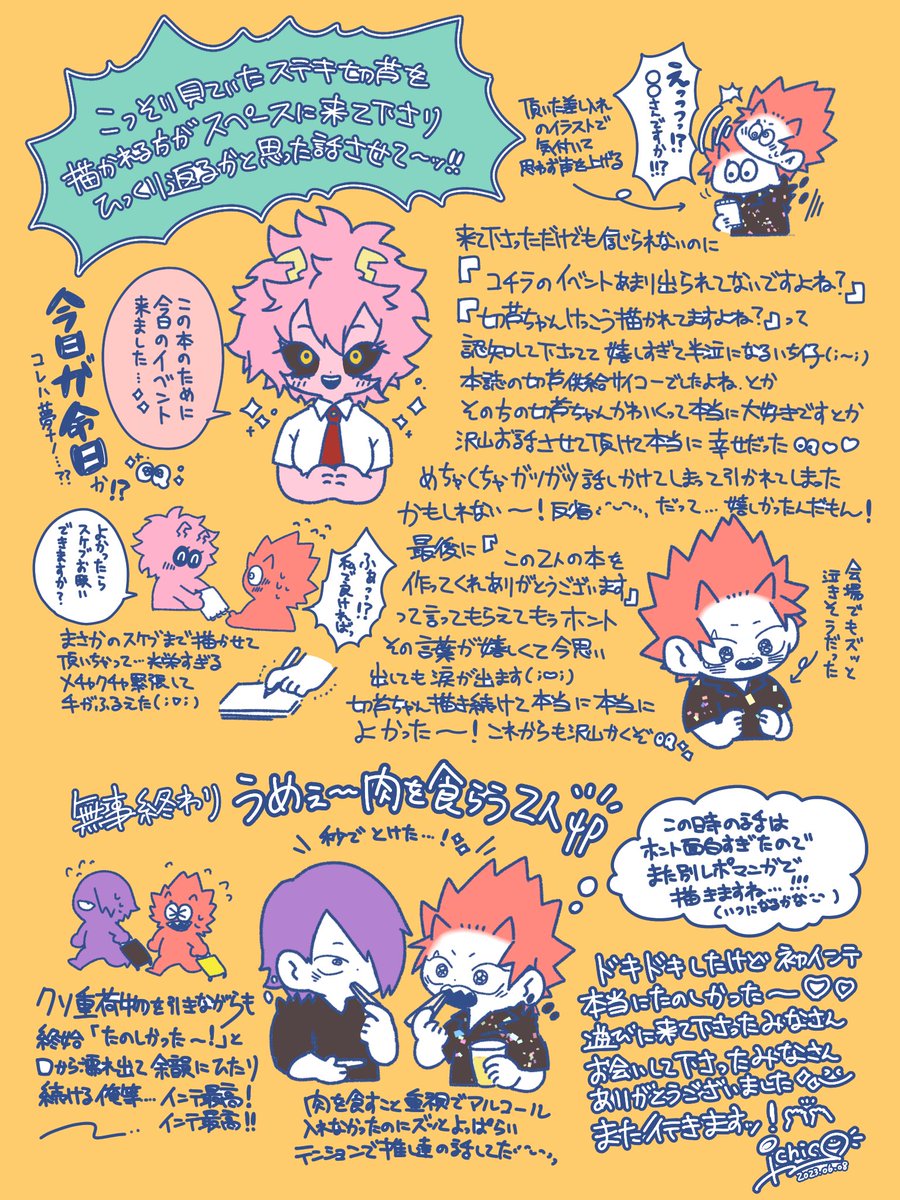 こっそり見ていたステキ切芦を
描かれる方がスペースに来て下さり
ひっくり返るかと思った話させて〜ッ!!
頂いた差し入れ
のイラストで
気付いて
思わず声を上げる
えっっっ!?
○○さんですか!!?
この本のために
今日のイベント
来ました…
今日が命日
か!?
コレハ夢ナノ…??
来て下さっただけでも信じられないのに
『コチラのイベントあまり出られてないですよね?』
『切芦ちゃんけっこう描かれてますよね?』って
認知して下さってて嬉しすぎて半泣になるいち仔(;~;)
本誌の切芦供給サイコーでしたよね、とか
その方の切芦ちゃんかわいくって本当に大好きですとか
沢山お話させて頂けて本当に幸せだった♡♡
めちゃくちゃガツガツ話しかけてしまって引かれてしまった
かもしれない〜!反省…だって…嬉しかったんだもん!
よかったら
スケブお願い
できますか?
ふぁっ!?
私で良ければっ
まさかのスケブまで描かせて
頂いちゃって…光栄すぎる
メチャクチャ緊張して
手がふるえた(;▽;)
最後に『この2人の本を
作ってくれありがとうございます』
って言ってもらえてもうホント
その言葉が嬉しくて今思い
出しても涙が出ます(;▽;)
切芦ちゃん描き続けて本当に本当に
よかった〜!これからも沢山かくぞ
会場でもズッと
泣きそうだった
無事終わり うめぇ〜肉を食らう2人
秒でとけた…!
この時の話は
ホント面白すぎたので
また別レポマンガで
描きますね…!!!
(いつになるかな…)
クソ重荷物を引きながらも
終始「たのしかった〜!」と
口から漏れ出て余韻にひたり
続ける俺等…インテ最高!
インテ最高!!
肉を食すこと重視でアルコール
入れなかったのにズッとよっぱらい
テンションで推し達の話してた…
ドキドキしたけど初インテ
本当にたのしかった〜♡♡
遊びに来て下さったみなさん
お会いして下さったみなさん
ありがとうございました
また行きますッ!
ichico
2023.06.08